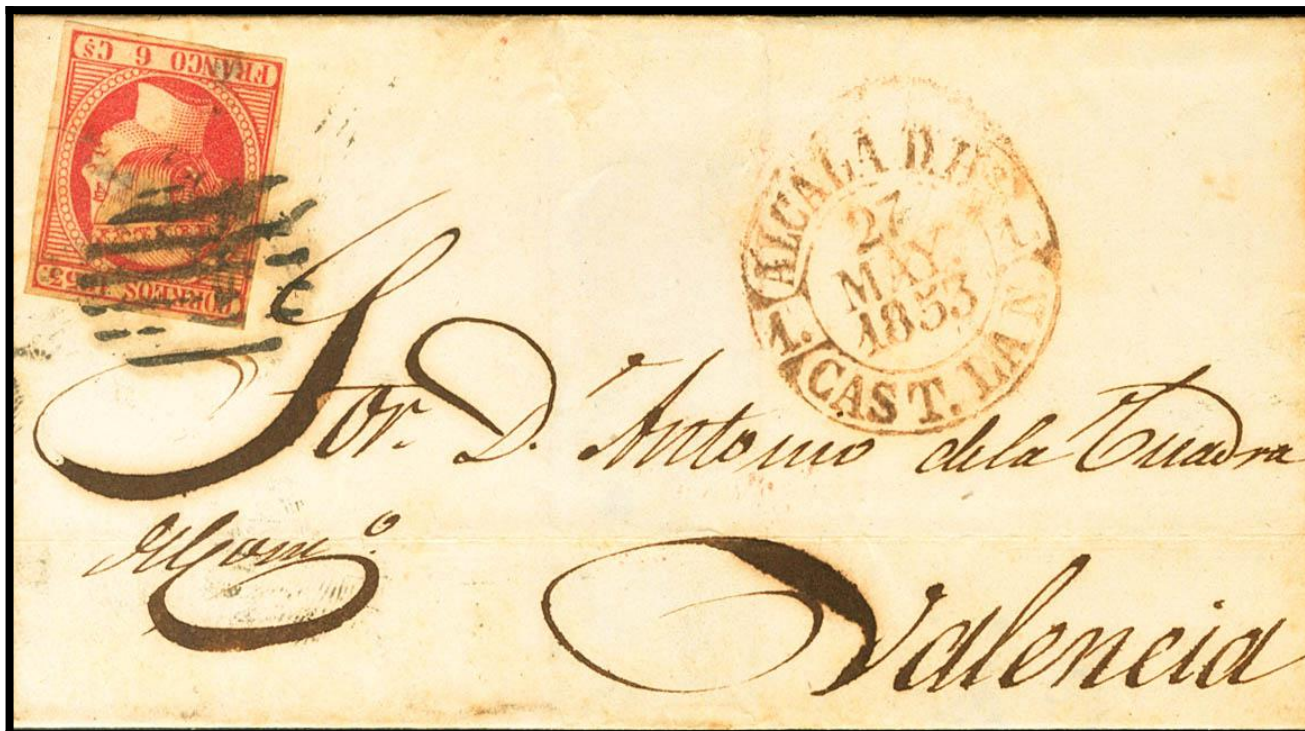 FRANCO 6 Cs
CORREOS 1853.
ALCALA D.H.
27
MAY.
1853
1.
1.
CAST. LA N
Sor. D. Antonio de la Cuadra
del Como.
Valencia